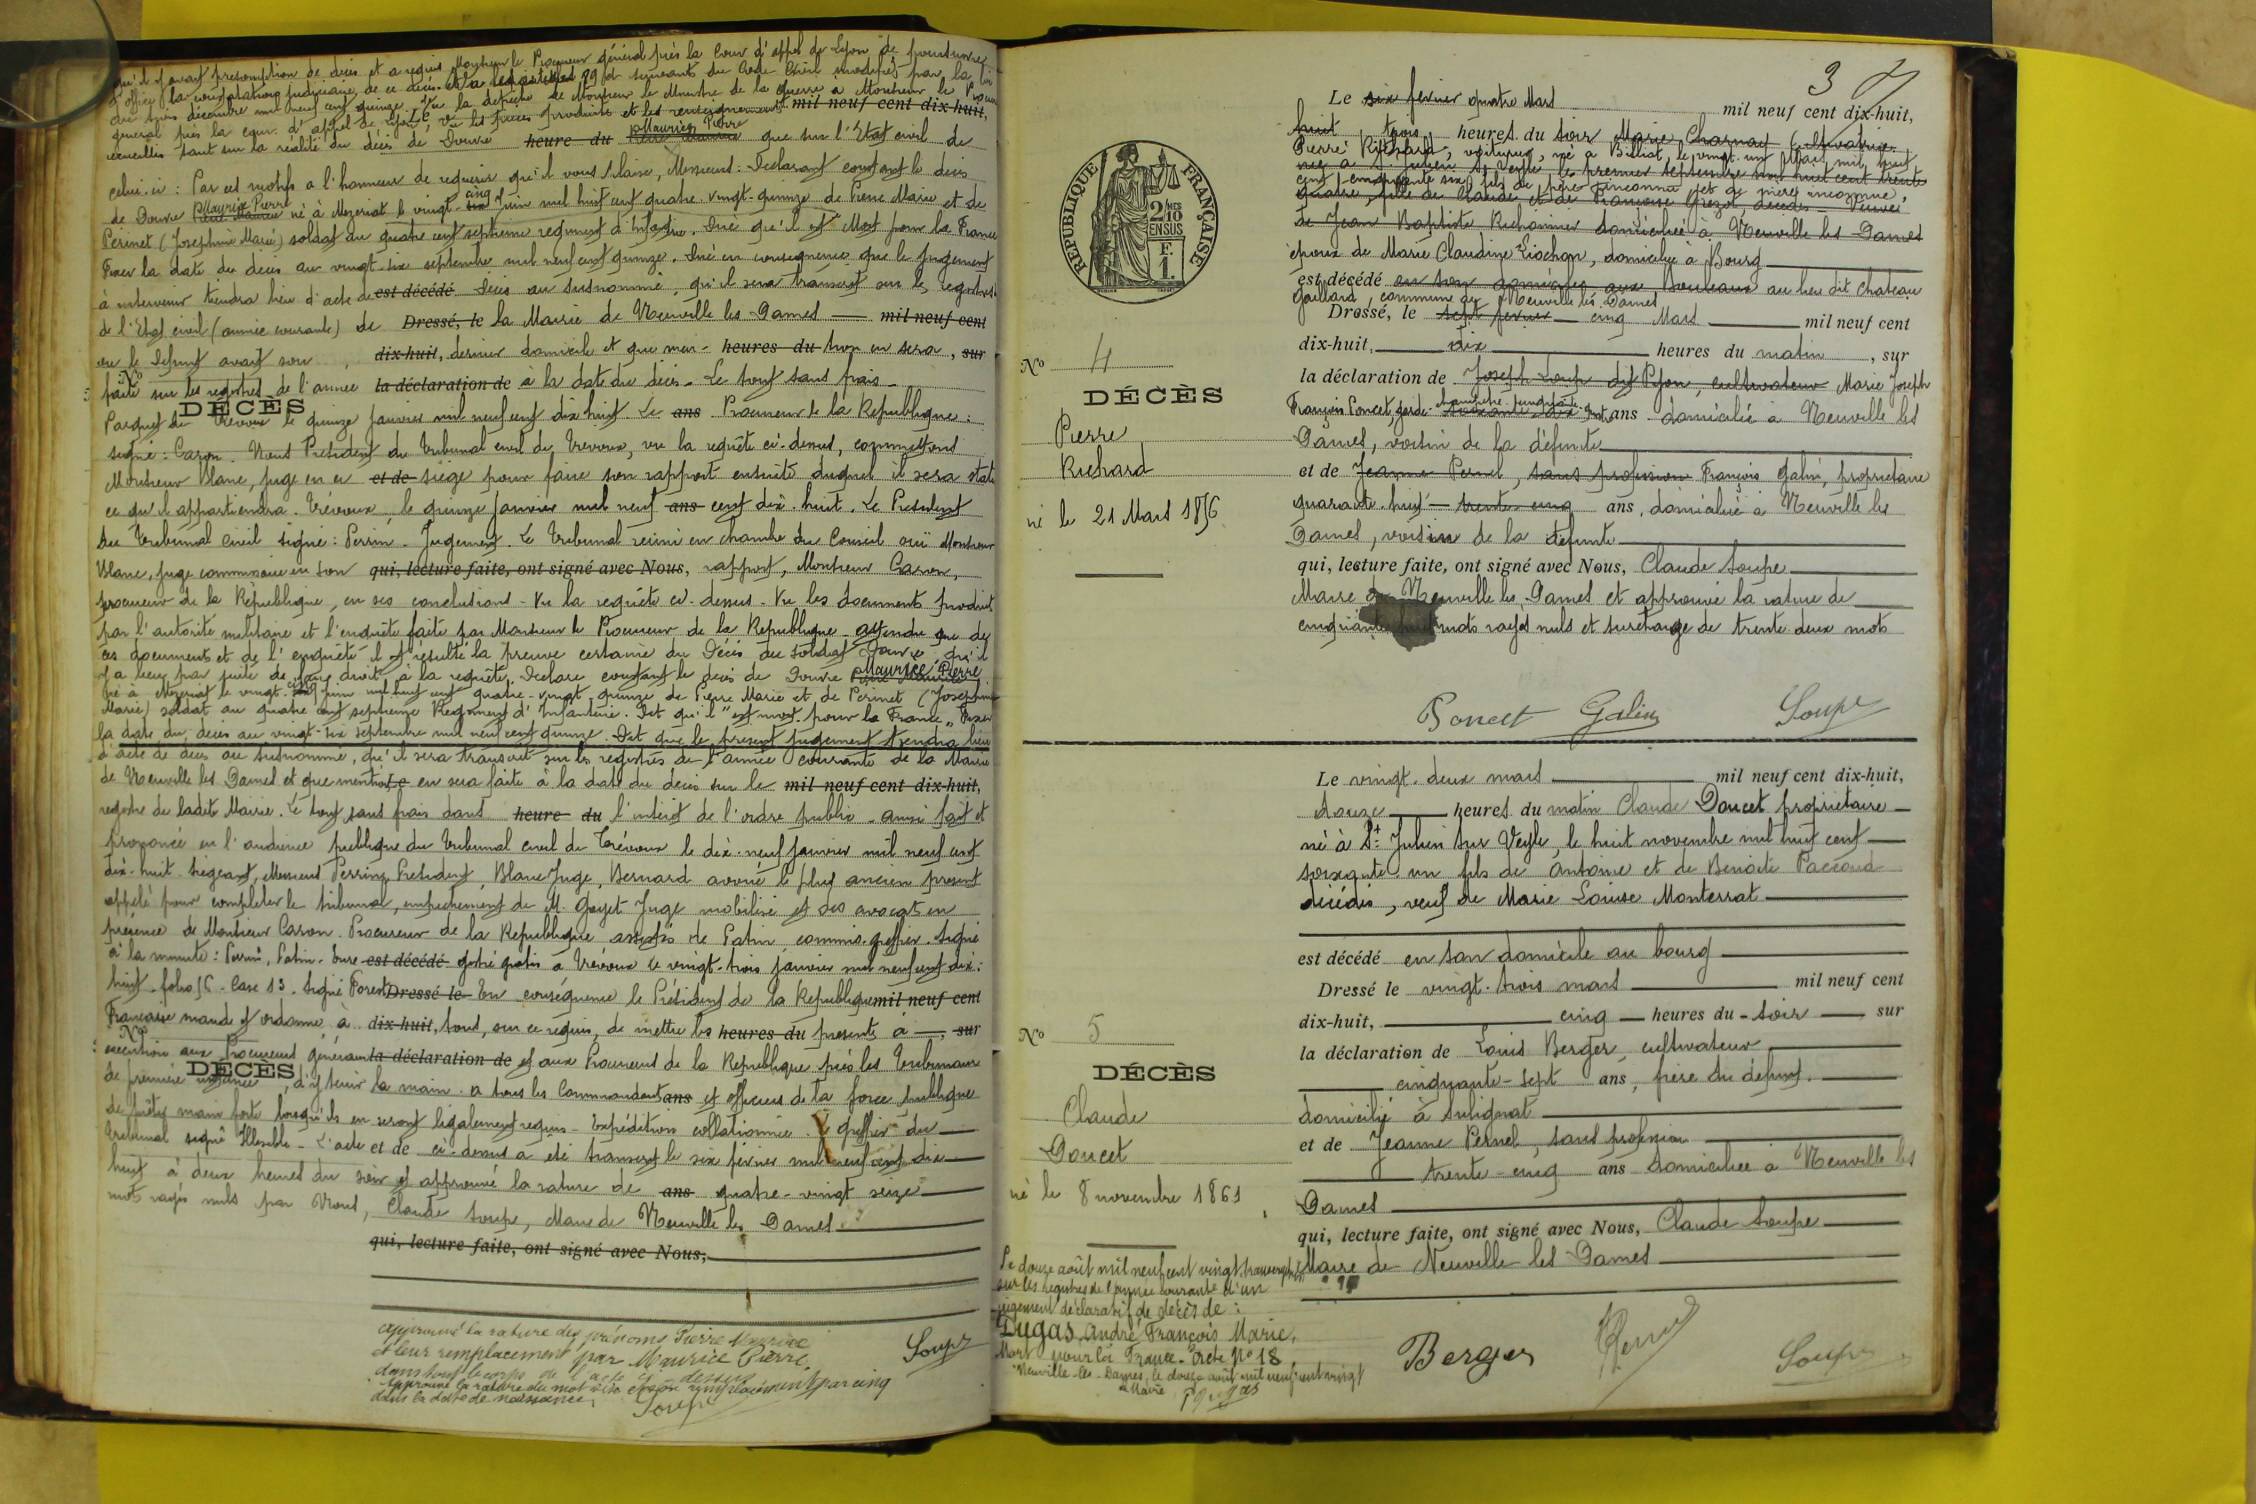 qu'il y avait présomption de décès et a requis Monsieur le Procureur général près la Cour d'appel de Lyon de poursuivre
d'office la constatation judiciaire de ce décès
du trois décembre mil neuf cent quinze. Vu la dépêche de Monsieur le Ministre de la guerre à Monsieur le
général près la cour d'appel de Lyon, vu les pièces produites et les renseignements mil neuf cent dix-huit,
recueillis tant sur la réalité du décès de Douvre heure du Maurice Pierre que sur l'Etat civil de
celui-ci : Par ces motifs a l'honneur de requérir qu'il vous plaise, Messieurs : Déclarant constant le décès
de Douvre Maurice Pierre né à Mezeriat le vingt-cinq Juin mil huit cent quatre-vingt-quinze de Pierre Marie et de
Perinet (Josephine Marie) soldat au quatre cent septieme regiment d'Infanterie. Dire qu'il est Mort pour la France
Fixer la date du décès au vingt-six septembre mil neuf cent quinze. Dire en conséquence que le jugement
à intervenir tiendra lieu d'acte de est décédé décès au susnommé, qu'il sera transcrit sur les registres
de l'Etat civil (année courante) de Dressé, le la Mairie de Neuville les Dames — mil neuf cent
ou le défunt avait son dix-huit, dernier domicile et que men- heures du tion en sera, sur
No
faite sur les registres de l'année la déclaration de à la date du décès - Le tout sans frais -
DÉCÈS
Parquet de Trevoux le quinze janvier mil neuf cent dix huit Le ans Procureur de la République :
signé : Caron. Nous Président du Tribunal civil de Trevoux, vu la requête ci-dessus, commettons
Monsieur Blanc, juge en ce et de siège pour faire son rapport ensuite duquel il sera statué
ce qu'il appartiendra. Trévoux, le quinze janvier mil neuf ans cent dix-huit. Le Président
du Tribunal Civil signé : Perrin. Jugement. Le Tribunal réuni en chambre du Conseil ouï Monsieur
Blanc, juge commissaire en son qui, lecture faite, ont signé avec Nous, rapport, Monsieur Caron,
procureur de la République, en ses conclusions - Vu la requête ci-dessus - Vu les documents produits
par l'autorité militaire et l'enquête faite par Monsieur le Procureur de la République - attendu que de
ces documents et de l'enquête il résulte la preuve certaine du Décès du soldat Douvre, qu'il
y a lieu par suite de faire droit à la requête. Déclare constant le décès de Douvre Maurice Pierre
né à Mezeriat le vingt-cinq juin mil huit cent quatre-vingt-quinze de Pierre Marie et de Perinet (Josephine
Marie) soldat au quatre cent septieme Régiment d'Infanterie. Dit qu'il "est mort pour la France" Fixer
la date du décès au vingt-six septembre mil neuf cent quinze. Dit que le présent jugement tiendra lieu
d'acte de décès au susnommé, qu'il sera transcrit sur les registres de l'année courante de la Mairie
de Neuville les Dames et que mention en sera faite à la date du décès sur le mil neuf cent dix-huit,
registre de ladite Mairie. Le tout sans frais dans heure du l'intérêt de l'ordre public - ainsi fait et
prononcé en l'audience publique du Tribunal civil de Trévoux le dix-neuf janvier mil neuf cent
dix-huit siégeant, Messieurs Perrin Président, Blanc Juge, Bernard avoué le plus ancien présent
appelé pour compléter le tribunal, empêchement de M. Goyet Juge mobilisé et des avocats en
présence de Monsieur Caron Procureur de la République assistés de Patin commis-greffier. Signé
à la minute : Perrin, Patin. Enre est décédé gistré gratis à Trévoux le vingt-trois janvier mil neuf cent dix-
huit folio 56 - Case 13. Signé Forest Dressé le En conséquence le Président de la République mil neuf cent
Française mande et ordonne à dix-huit, tous, sur ce requis, de mettre les heures du presents à —, sur
No
exécution aux Procureurs généraux la déclaration de et aux Procureurs de la République près les Tribunaux
DÉCÈS
de première instance, d'y tenir la main. a tous les Commandants ans et officiers de la force publique
de prêter main forte lorsqu'ils en seront légalement requis - Expédition collationnée. Le greffier du
tribunal signé Illisible - L'acte et de ci-dessus a été transcrit le six février mil neuf cent dix-
huit à deux heures du soir et approuvé la rature de ans quatre-vingt seize
mots rayés nuls par Nous, Claude Soupe, Maire de Neuville les Dames.
qui, lecture faite, ont signé avec Nous,
approuvé la rature des prénoms Pierre Maurice
et leur remplacement par Maurice Pierre
dans tout le corps de l'acte ci-dessus
Soupe
Approuvé la rature du mot six et son remplacement par cinq
dans la date de naissance,
Soupe
3
Le six février quatre Mars mil neuf cent dix-huit,
huit trois heures du soir Marie Charnay Cultivatrice
Pierre Richard, voiturier, né à Billiat, le vingt-un Mars mil huit
née à St Julien sur Veyle, le premier septembre mil huit cent trente
cent cinquante six, fils de père inconnu et de mère inconnue,
quatre, fille de Claude et de Françoise Grezot, décédés - Veuve
de Jean Baptiste Richonnier domiciliée à Neuville les Dames
époux de Marie Claudine Liochon, domiciliée à Bourg
est décédé en son domicile aux Bouleaux au lieu dit Chateau
Gaillard, commune de Neuville les Dames
Dressé, le sept février — cinq Mars — mil neuf cent
dix-huit, — dix — heures du matin, sur
la déclaration de Joseph Loup dit Pyon, cultivateur Marie Joseph
François Poncet, garde-champêtre cinquante-huit ans domicilié à Neuville les
Dames, voisin de la défunte
et de Jeanne Pernel, sans profession François Galin, propriétaire
quarante-huit — trente cinq ans, domicilié à Neuville les
Dames, voisin de la défunte
qui, lecture faite, ont signé avec Nous, Claude Soupe
Maire de Neuville les Dames et approuvé la rature de
cinquante mots rayés nuls et surcharge de trente deux mots
Poncet Galin Soupe
RÉPUBLIQUE FRANÇAISE
2/10 MES EN SUS
F. 1.
No 4
DÉCÈS
Pierre
Richard
né le 21 Mars 1856
Le vingt-deux mars — mil neuf cent dix-huit,
douze — heures du matin Claude Doucet propriétaire
né à St Julien sur Veyle, le huit novembre mil huit cent
soixante-un fils de Antoine et de Benoite Paccoud
décédés, veuf de Marie Louise Monterrat
est décédé en son domicile au bourg
Dressé le vingt-trois mars — mil neuf cent
dix-huit, — cinq — heures du - soir — sur
la déclaration de Louis Berger, cultivateur
cinquante-sept ans, frère du défunt.
domicilié à Sulignat
et de Jeanne Pernel, sans profession
trente-cinq ans domiciliée à Neuville les
Dames
qui, lecture faite, ont signé avec Nous, Claude Soupe
Maire de Neuville les Dames
Berger Pernel Soupe
No 5
DÉCÈS
Claude
Doucet
né le 8 novembre 1861
Le douze août mil neuf cent vingt, transcription
sur les registres de l'année courante d'un
jugement déclaratif de décès de :
Dugas, André François Marie,
Mort pour la France. Acte No 18
Neuville-les-Dames, le douze août mil neuf cent vingt
Le Maire